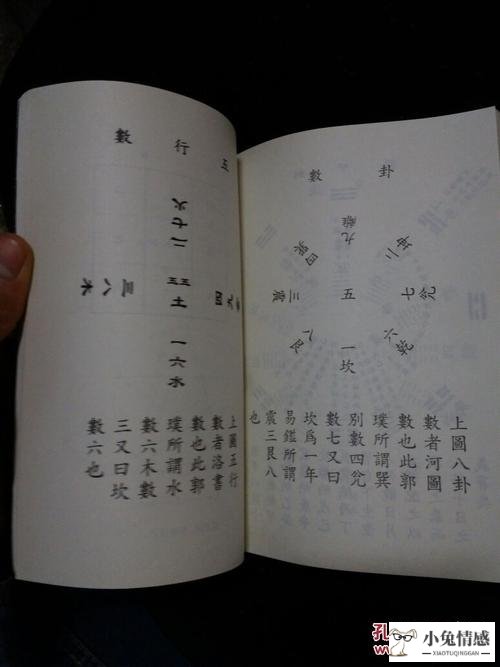 卦數
離九
巽四
坤二
震三
五
兊七
艮八
一坎
六乾
上圖八卦
數者河圖
數也此郭
璞所謂巽
別數四兊
數七又曰
坎爲一年
易鑑所謂
震三艮八
也
五行數
火七二
木八三
五五土
四九
一六水
上圖五行
數者洛書
數也此郭
璞所謂水
數六木數
三又曰坎
數六也
孔
小兔情感
WWW.XIAOTUQINGGAN.COM